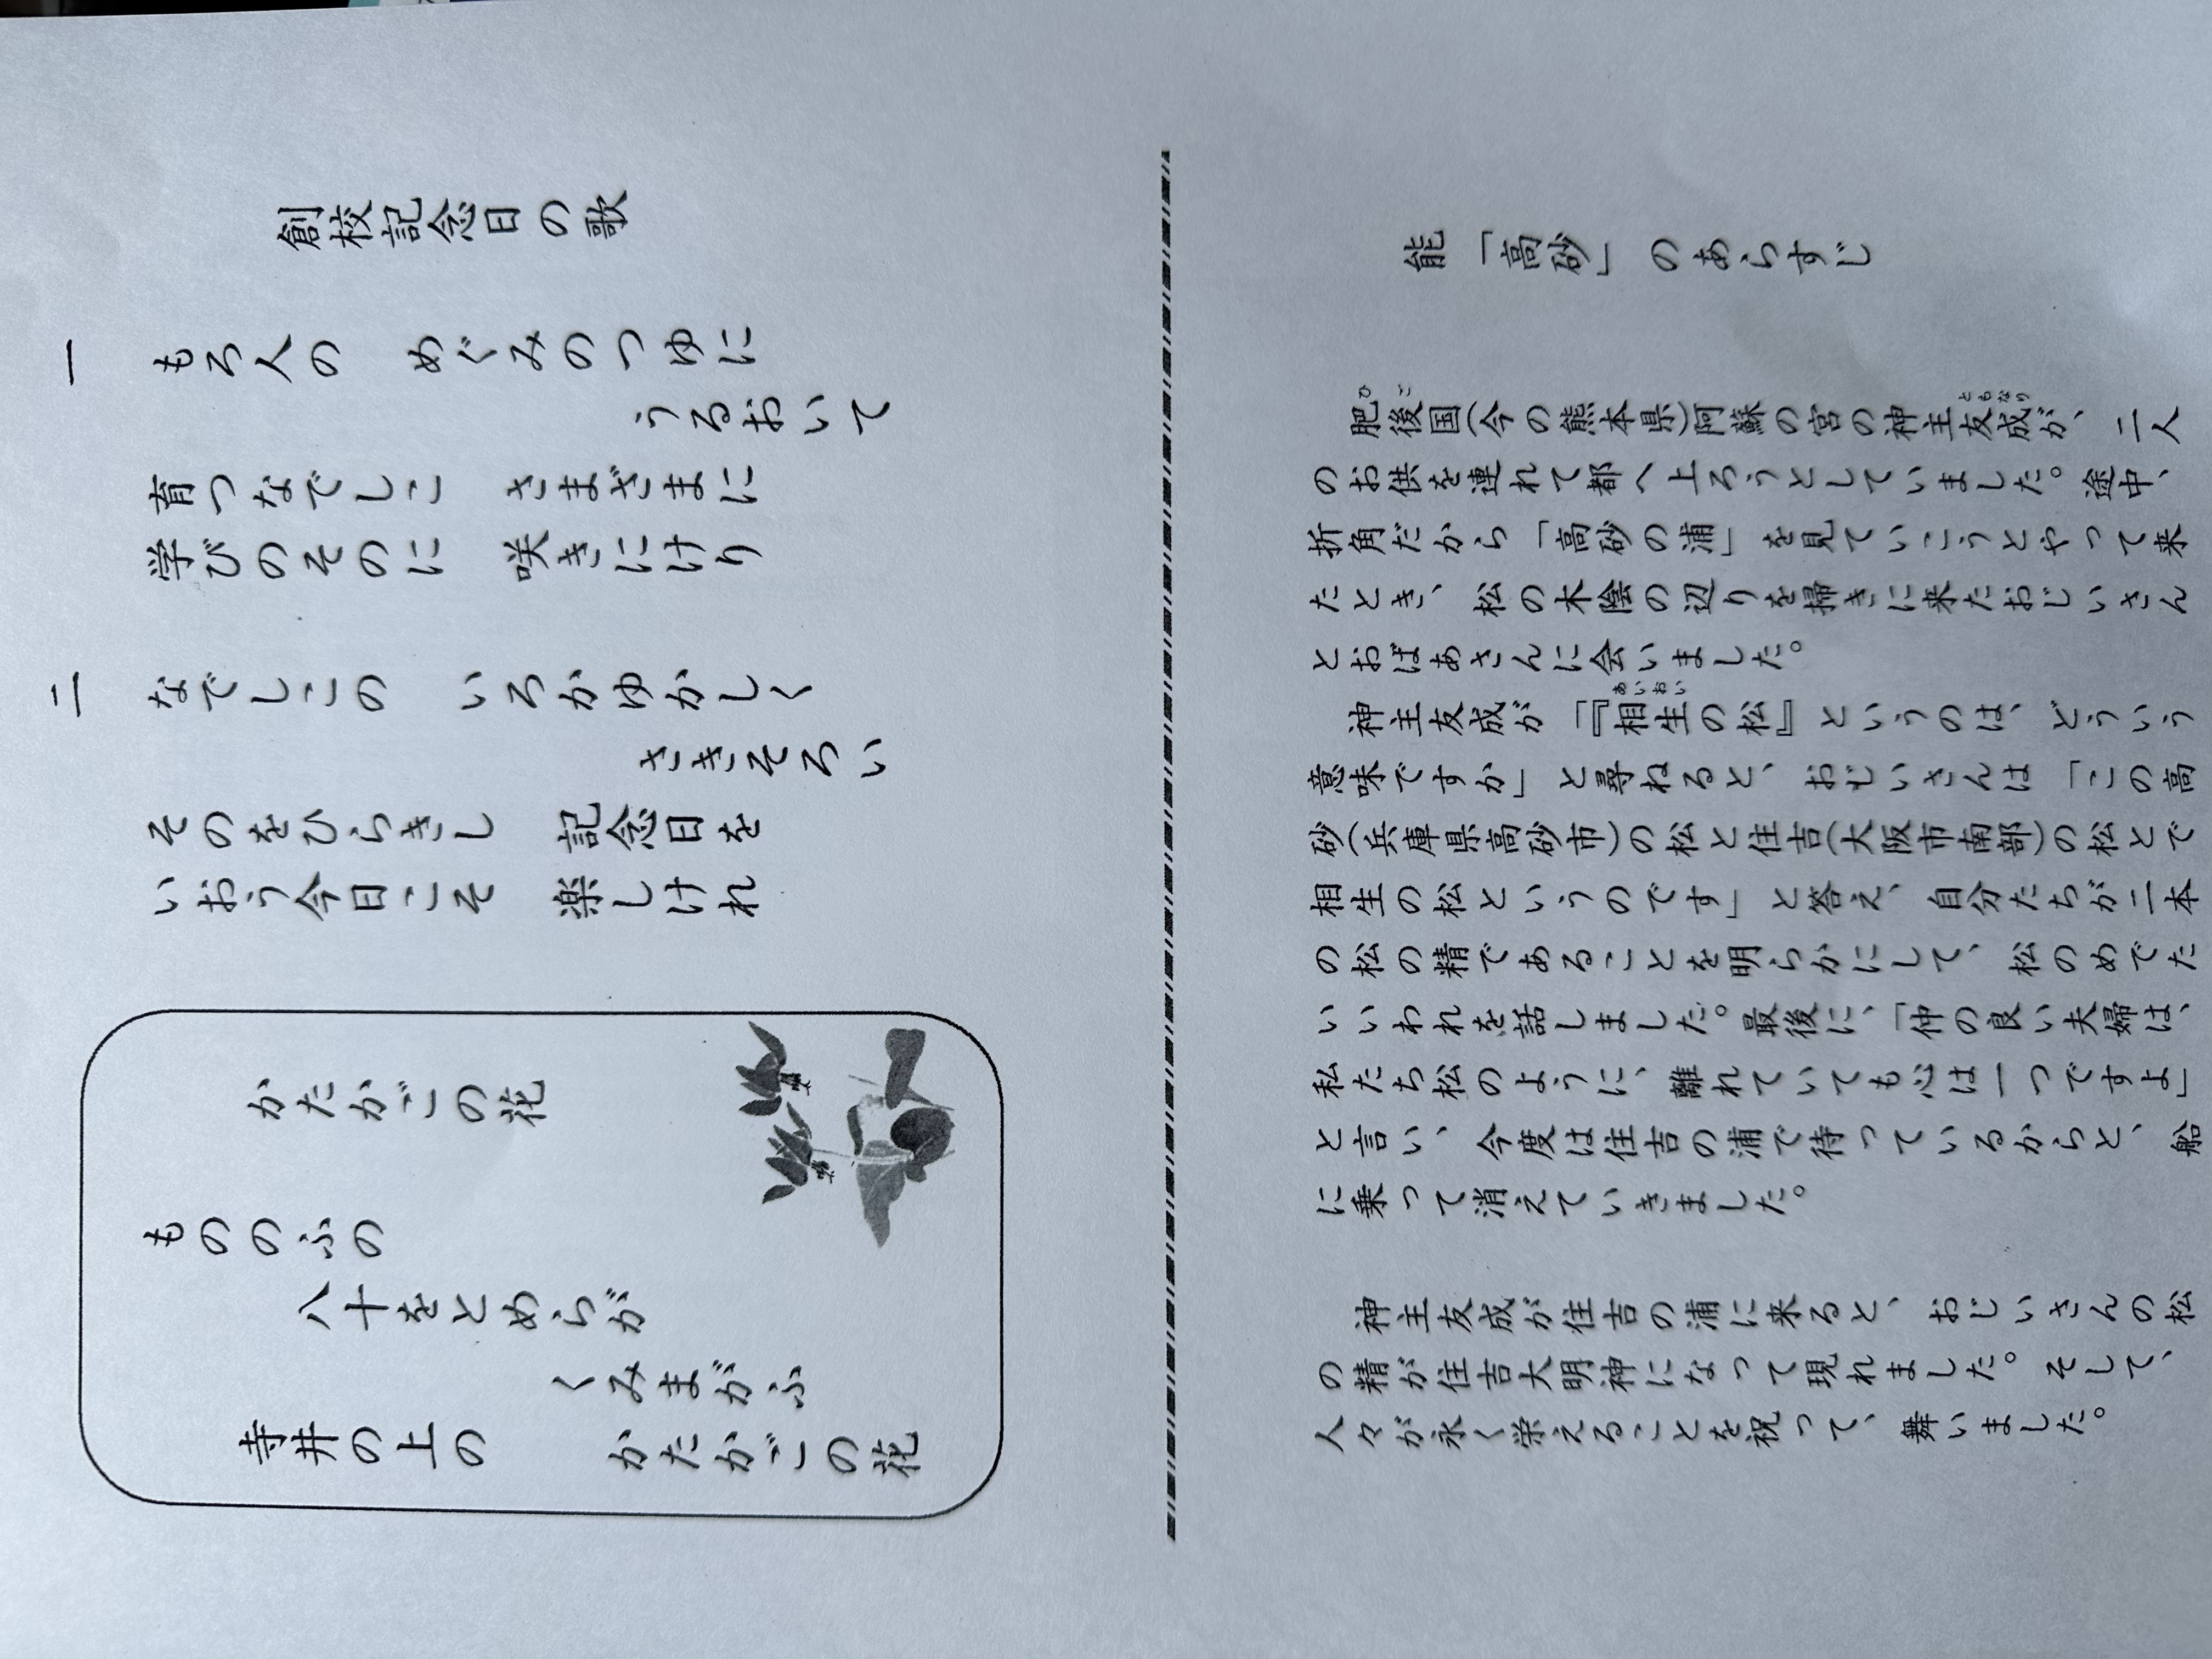 創校記念日の歌
一
もろ人の　めぐみのつゆに
うるおいて
育つなでしこ　さまざまに
学びのそのに　咲きにけり
二
なでしこの　いろかゆかしく
さきそろい
そのをひらきし　記念日を
いおう今日こそ　楽しけれ
かたかごの花
もののふの
八十をとめらが
くみまがふ
寺井の上の　かたかごの花
能「高砂」のあらすじ
ひご
ともなり
肥後国(今の熊本県)阿蘇の宮の神主友成が、二人
のお供を連れて都へ上ろうとしていました。途中、
折角だから「高砂の浦」を見ていこうとやって来
たとき、松の木陰の辺りを掃きに来たおじいさん
とおばあさんに会いました。
あいおい
神主友成が「『相生の松』というのは、どういう
意味ですか」と尋ねると、おじいさんは「この高
砂(兵庫県高砂市)の松と住吉(大阪市南部)の松とで
相生の松というのです」と答え、自分たちが二本
の松の精であることを明らかにして、松のめでた
いいわれを話しました。最後に、「仲の良い夫婦は、
私たち松のように、離れていても心は一つですよ」
と言い、今度は住吉の浦で待っているからと、船
に乗って消えていきました。
神主友成が住吉の浦に来ると、おじいさんの松
の精が住吉大明神になって現れました。そして、
人々が永く栄えることを祝って、舞いました。